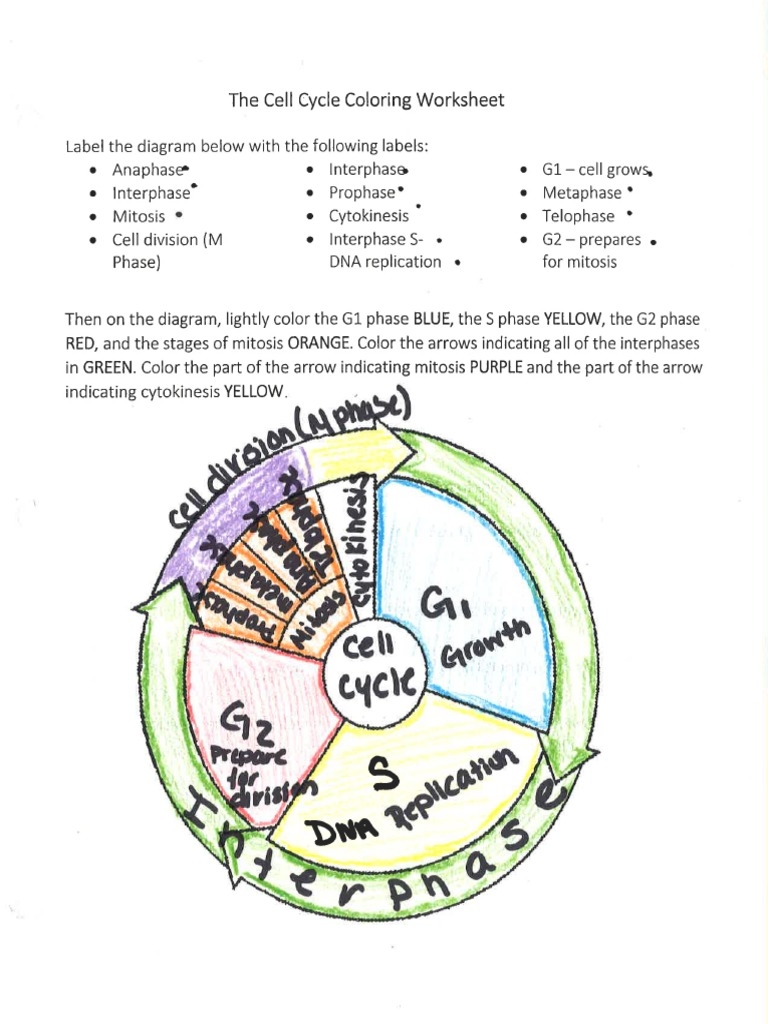 The Cell Cycle Coloring Worksheet
Label the diagram below with the following labels:
• Anaphase
• Interphase
• Mitosis
• Cell division (M
Phase)
• Interphase
• Prophase
• Cytokinesis
• Interphase S-
DNA replication
• G1 – cell grows
• Metaphase
• Telophase
• G2 – prepares
for mitosis
Then on the diagram, lightly color the G1 phase BLUE, the S phase YELLOW, the G2 phase
RED, and the stages of mitosis ORANGE. Color the arrows indicating all of the interphases
in GREEN. Color the part of the arrow indicating mitosis PURPLE and the part of the arrow
indicating cytokinesis YELLOW.
Cell division (M phase)
Prophase
metaphase
Anaphase
Telophase
Cytokinesis
Mitosis
Cell
cycle
G1
Growth
G2
Prepare
for
division
S
DNA Replication
Interphase